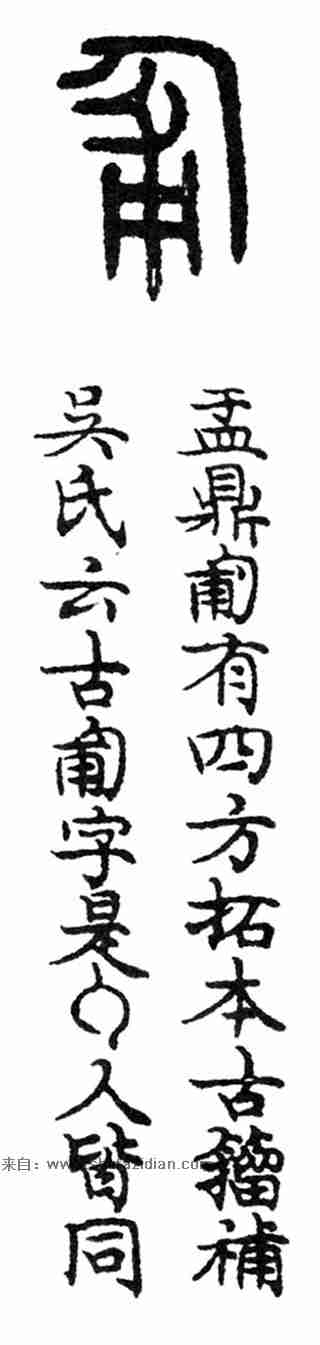 匍
盂鼎匍有四方拓本古籀補
吳氏云古匍字是人皆同
来自：www.shufazidian.com